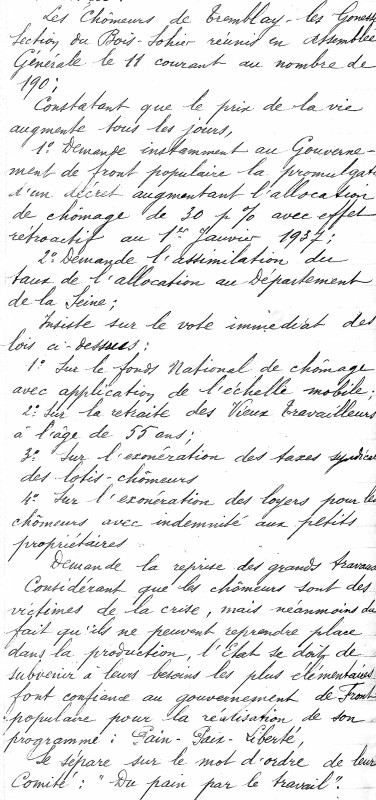 Les Chômeurs de Tremblay-les Gonesse
Section du Bois-Sohier réunis en Assemblée
Générale le 11 courant au nombre de
190;
Constatant que le prix de la vie
augmente tous les jours,
1º Demande instamment au Gouverne-
ment de front populaire la promulgati
d'un décret augmentant l'allocation
de chômage de 30 p % avec effet
rétroactif au 1er Janvier 1937;
2º Demande l'assimilation du
taux de l'allocation au Département
de la Seine;
Insiste sur le vote immédiat des
lois ci-dessus:
1º Sur le fonds National de chômage
avec application de l'échelle mobile;
2º Sur la retraite des Vieux travailleurs
à l'âge de 55 ans;
3º Sur l'exonération des taxes syndicales
des lotis-chômeurs
4º Sur l'exonération des loyers pour les
chômeurs avec indemnité aux petits
propriétaires
Demande la reprise des grands travaux
Considérant que les chômeurs sont des
victimes de la crise, mais néanmoins du
fait qu'ils ne peuvent reprendre place
dans la production, l'Etat se doit de
subvenir à leurs besoins les plus élémentaires
font confiance au gouvernement de Front
populaire pour la réalisation de son
programme: Pain-Paix-Liberté,
Se sépare sur le mot d'ordre de leur
Comité: "Du pain par le travail".